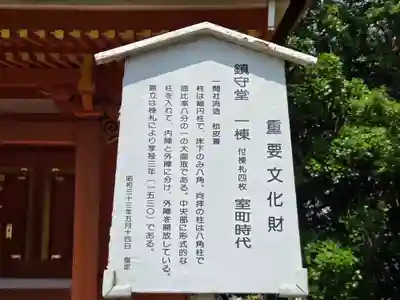 重要文化財
鎮守堂 一棟 付棟札四枚 室町時代
一間社流造 桧皮葺
柱は細円柱で、床下のみ八角。向拝の柱は八角柱で
面比率八分の一の大面取である。中央部に形式的な
柱を入れて、内陣と外陣に分け、外陣を開放している。
建立は棟札により享禄三年（一五三〇）である。
昭和三十三年五月十四日 指定